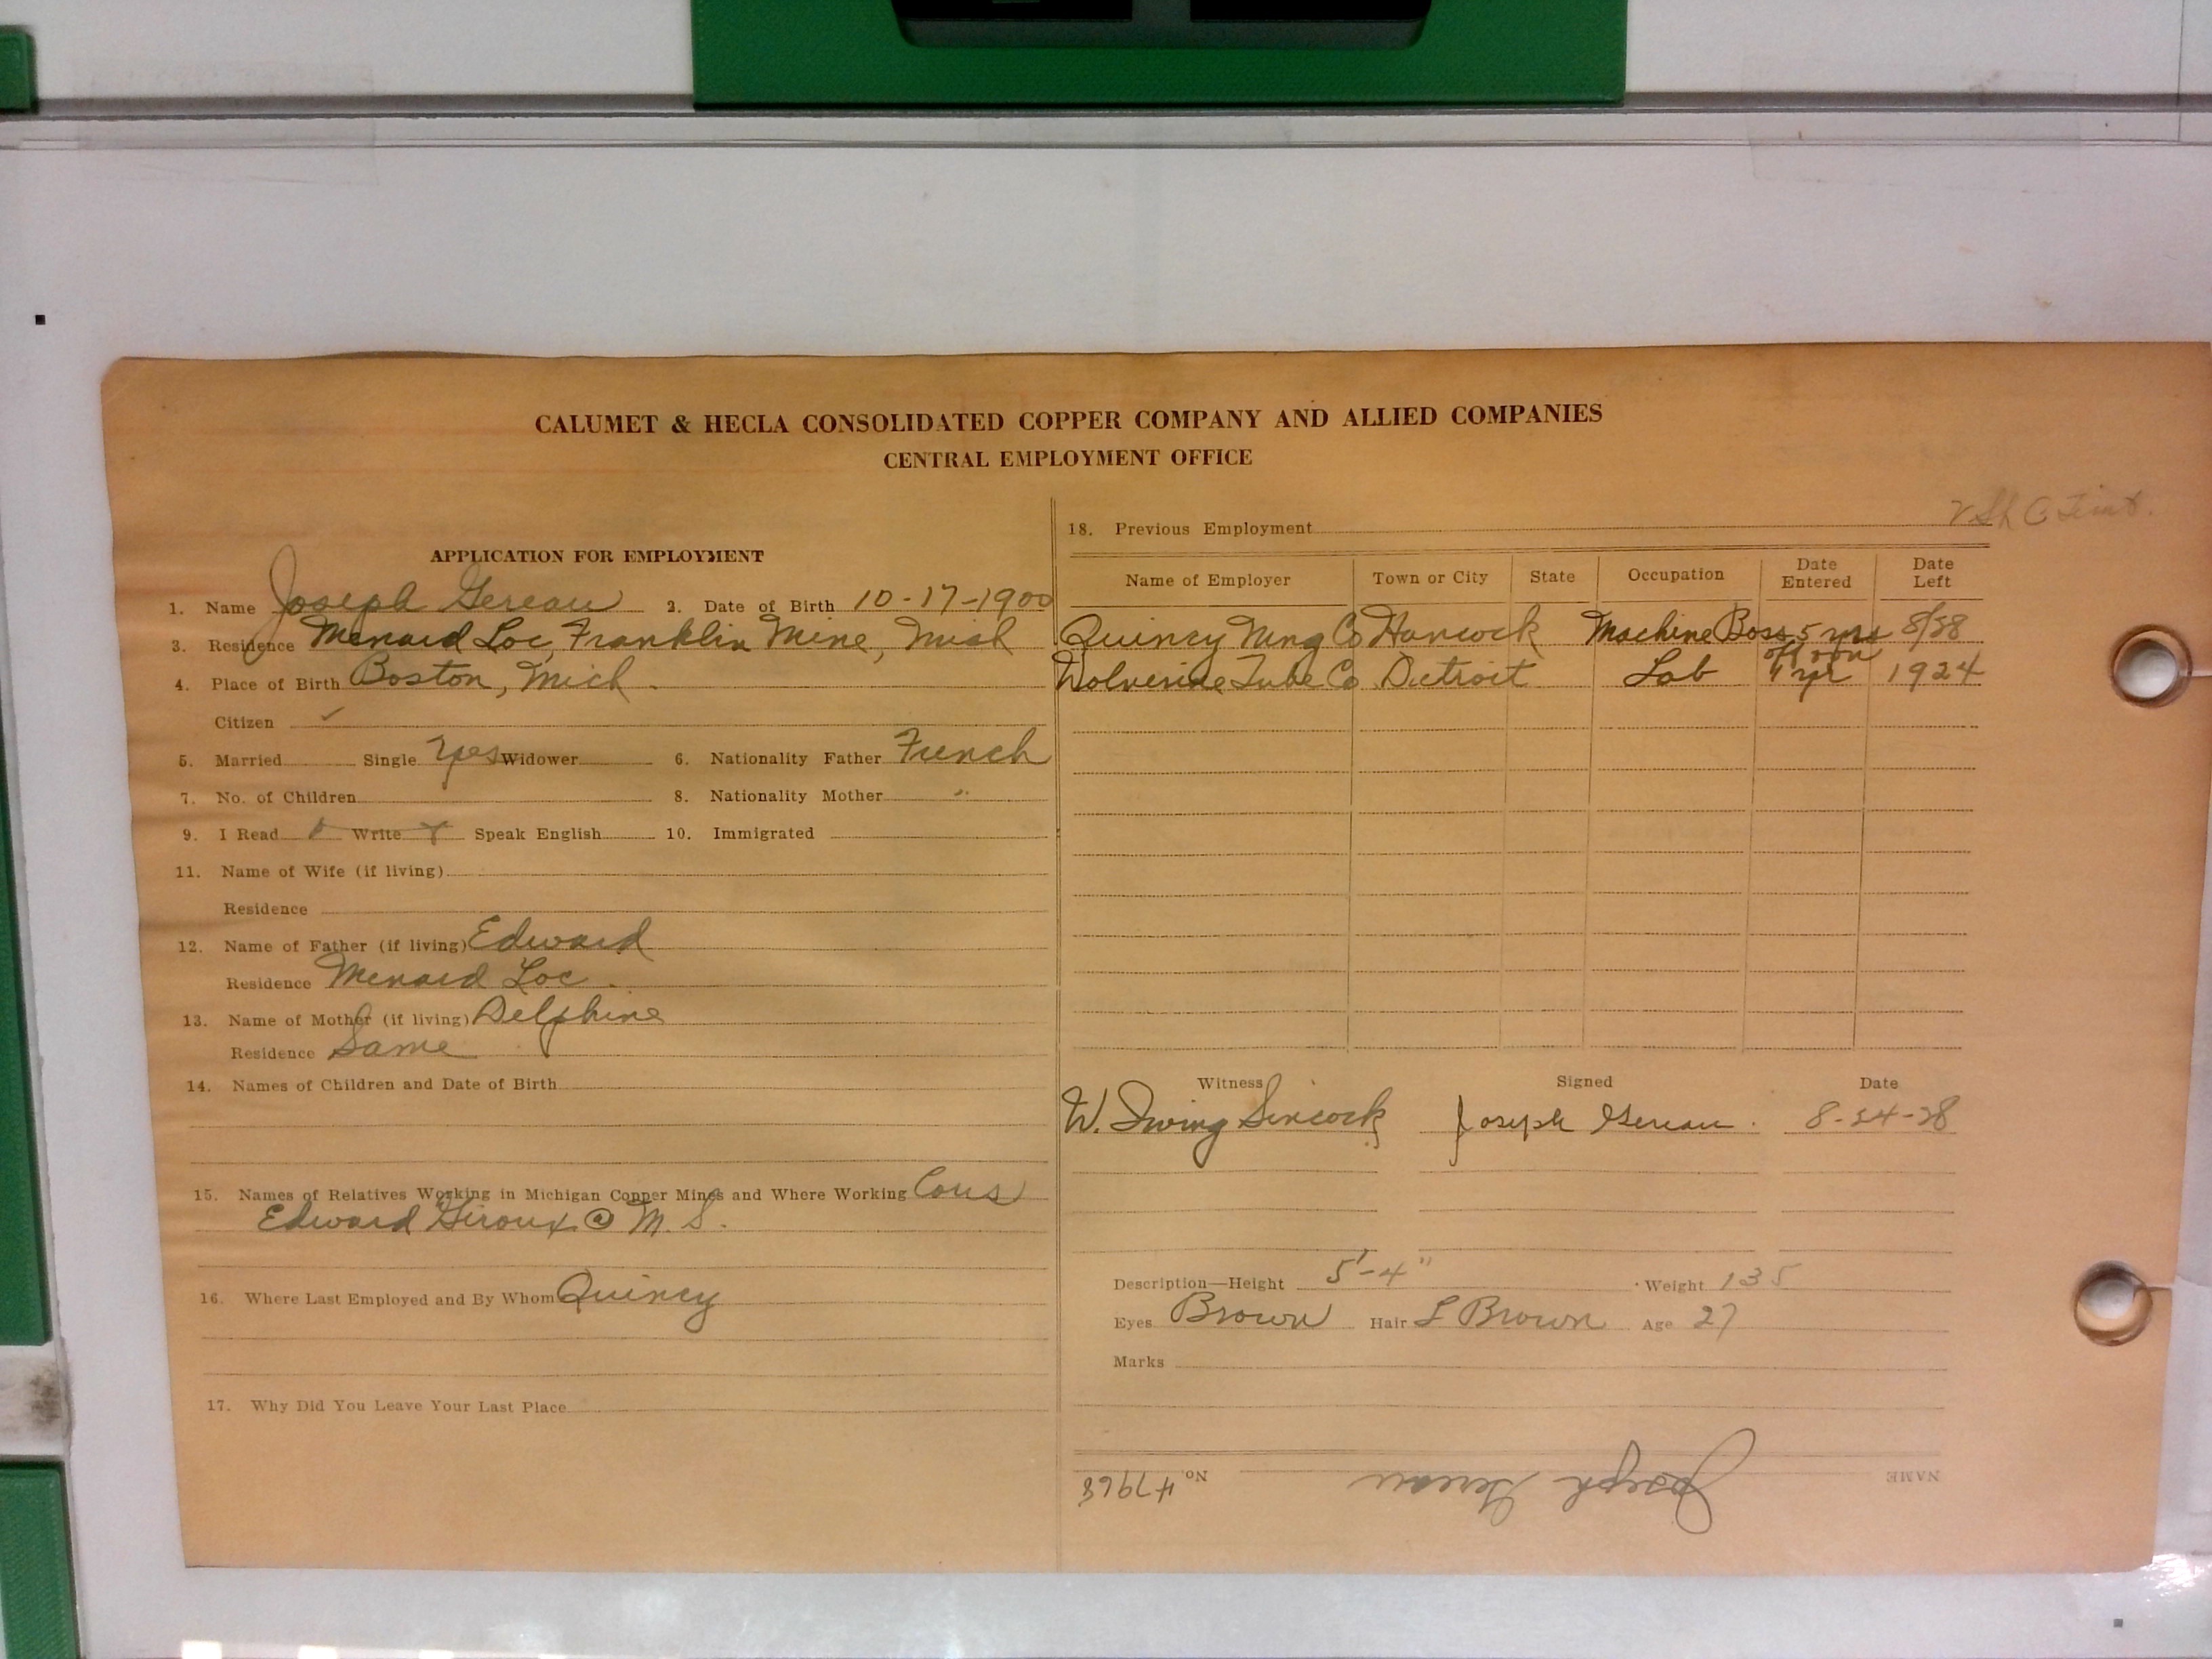 CALUMET & HECLA CONSOLIDATED COPPER COMPANY AND ALLIED COMPANIES
CENTRAL EMPLOYMENT OFFICE
APPLICATION FOR EMPLOYMENT
1. Name Joseph Gereau 2. Date of Birth 10-17-1900
3. Residence Menard Loc, Franklin Mine, Mich
4. Place of Birth Boston, Mich.
Citizen ✓
5. Married Single Yes Widower 6. Nationality Father French
7. No. of Children 8. Nationality Mother "
9. I Read Write Speak English 10. Immigrated
11. Name of Wife (if living)
Residence
12. Name of Father (if living) Edward
Residence Menard Loc.
13. Name of Mother (if living) Delphine
Residence Same
14. Names of Children and Date of Birth
15. Names of Relatives Working in Michigan Copper Mines and Where Working Cous
Edward Giroux @ M. S.
16. Where Last Employed and By Whom Quincy
17. Why Did You Leave Your Last Place
18. Previous Employment
Name of Employer Town or City State Occupation Date Entered Date Left
Quincy Mng Co Hancock Machine Boss 5 yrs 8/28
off & on
Wolverine Tube Co Detroit Lab 1 yr 1924
Witness Signed Date
W. Irving Sincock Joseph Gereau. 8-24-28
Description—Height 5'-4" Weight 135
Eyes Brown Hair L Brown Age 27
Marks
NAME Joseph Gereau No. # 7968